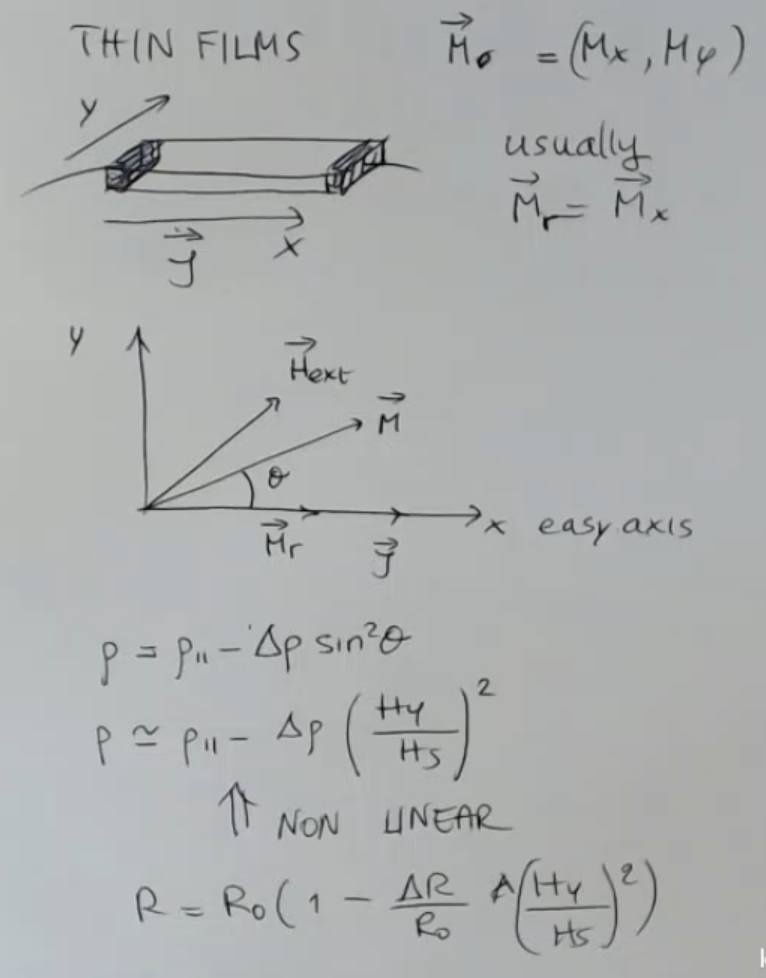 THIN FILMS
M⃗σ = (Mx, My)
y
usually
M⃗r = M⃗x
J⃗
x
y
H⃗ext
M⃗
θ
x easy axis
M⃗r
J⃗
ρ = ρ₁₁ - Δρ sin²θ
ρ ≃ ρ₁₁ - Δρ (Hy/Hs)²
⇑ NON LINEAR
R = R₀ (1 - ΔR/R₀ (Hy/Hs)²)